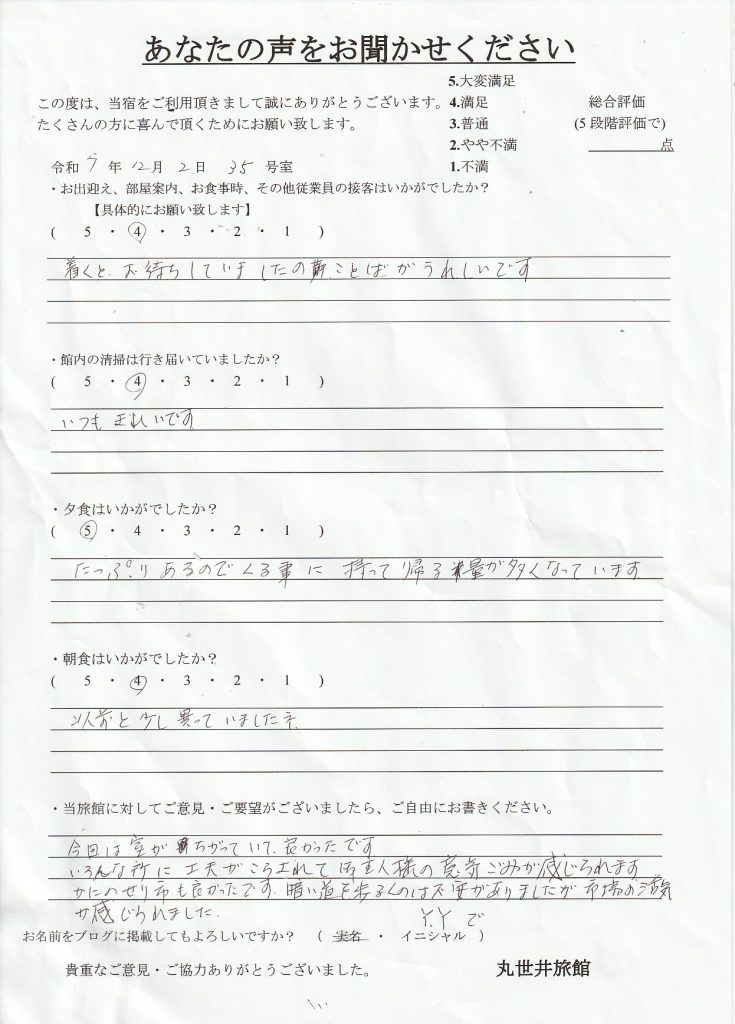 あなたの声をお聞かせください
5.大変満足
この度は、当宿をご利用頂きまして誠にありがとうございます。 4.満足 総合評価
たくさんの方に喜んで頂くためにお願い致します。 3.普通 (5段階評価で)
2.やや不満 点
令和 7 年 12 月 2 日 35 号室 1.不満
・お出迎え、部屋案内、お食事時、その他従業員の接客はいかがでしたか？
【具体的にお願い致します】
( 5 ・ 4 ・ 3 ・ 2 ・ 1 )
着くと、お待ちしていましたの ことばがうれしいです
・館内の清掃は行き届いていましたか？
( 5 ・ 4 ・ 3 ・ 2 ・ 1 )
いつもきれいです
・夕食はいかがでしたか？
( 5 ・ 4 ・ 3 ・ 2 ・ 1 )
たっぷりあるのでくる事に 持って帰る 量が多くなっています
・朝食はいかがでしたか？
( 5 ・ 4 ・ 3 ・ 2 ・ 1 )
以前と少し異っていましたネ
・当旅館に対してご意見・ご要望がございましたら、ご自由にお書きください。
今回は室が ちがっていて、良かったです
いろんな所に工夫がこらされて 主人様の意気ごみが感じられます
かにのせり市も良かったです。暗い道を歩るくのは不安がありましたが市場の活気
が感じられました。
Y.Y で
お名前をブログに掲載してもよろしいですか？ ( 実名 ・ イニシャル )
貴重なご意見・ご協力ありがとうございました。 丸世井旅館